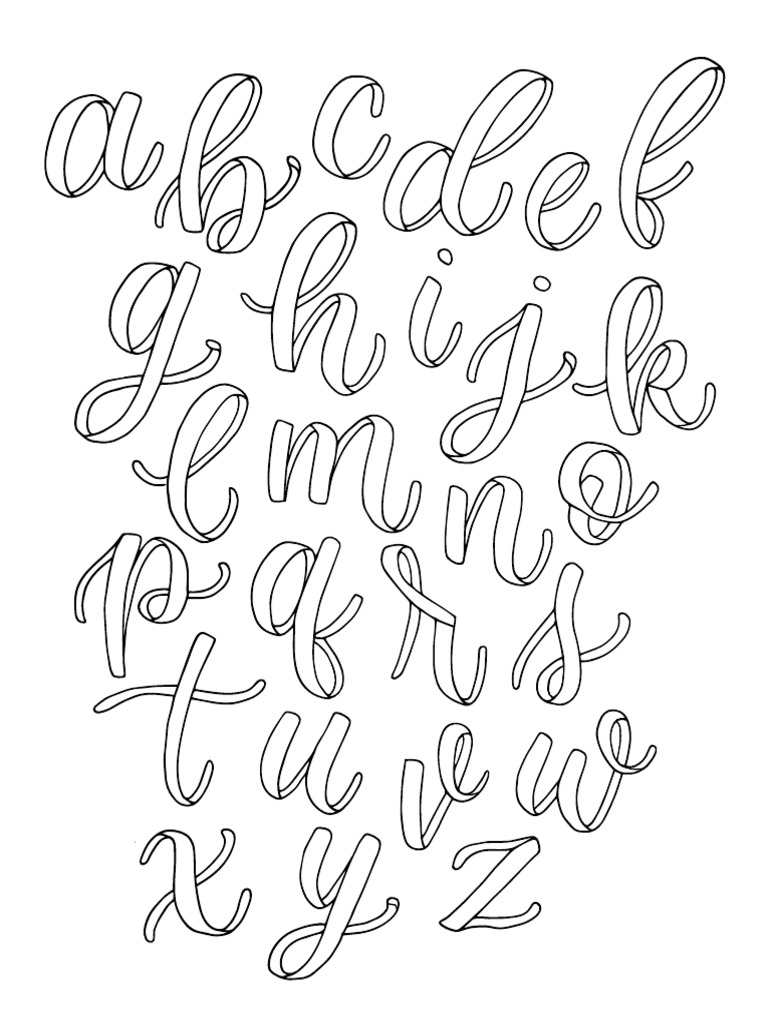 a b c d e f
g h i j k
l m n o
p q r s
t u v w
x y z